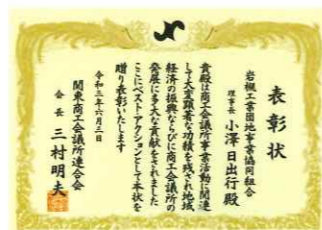 表彰状
岩槻工業団地事業協同組合
理事長 小澤日出行殿
貴殿は商工会議所事業活動に関連
して大変顕著な功績を残され地域
経済の振興ならびに商工会議所の
発展に多大な貢献をされました
ここにベスト・アクションとして本状を
贈り表彰いたします
令和三年六月三日
関東商工会議所連合会
会長 三村明夫